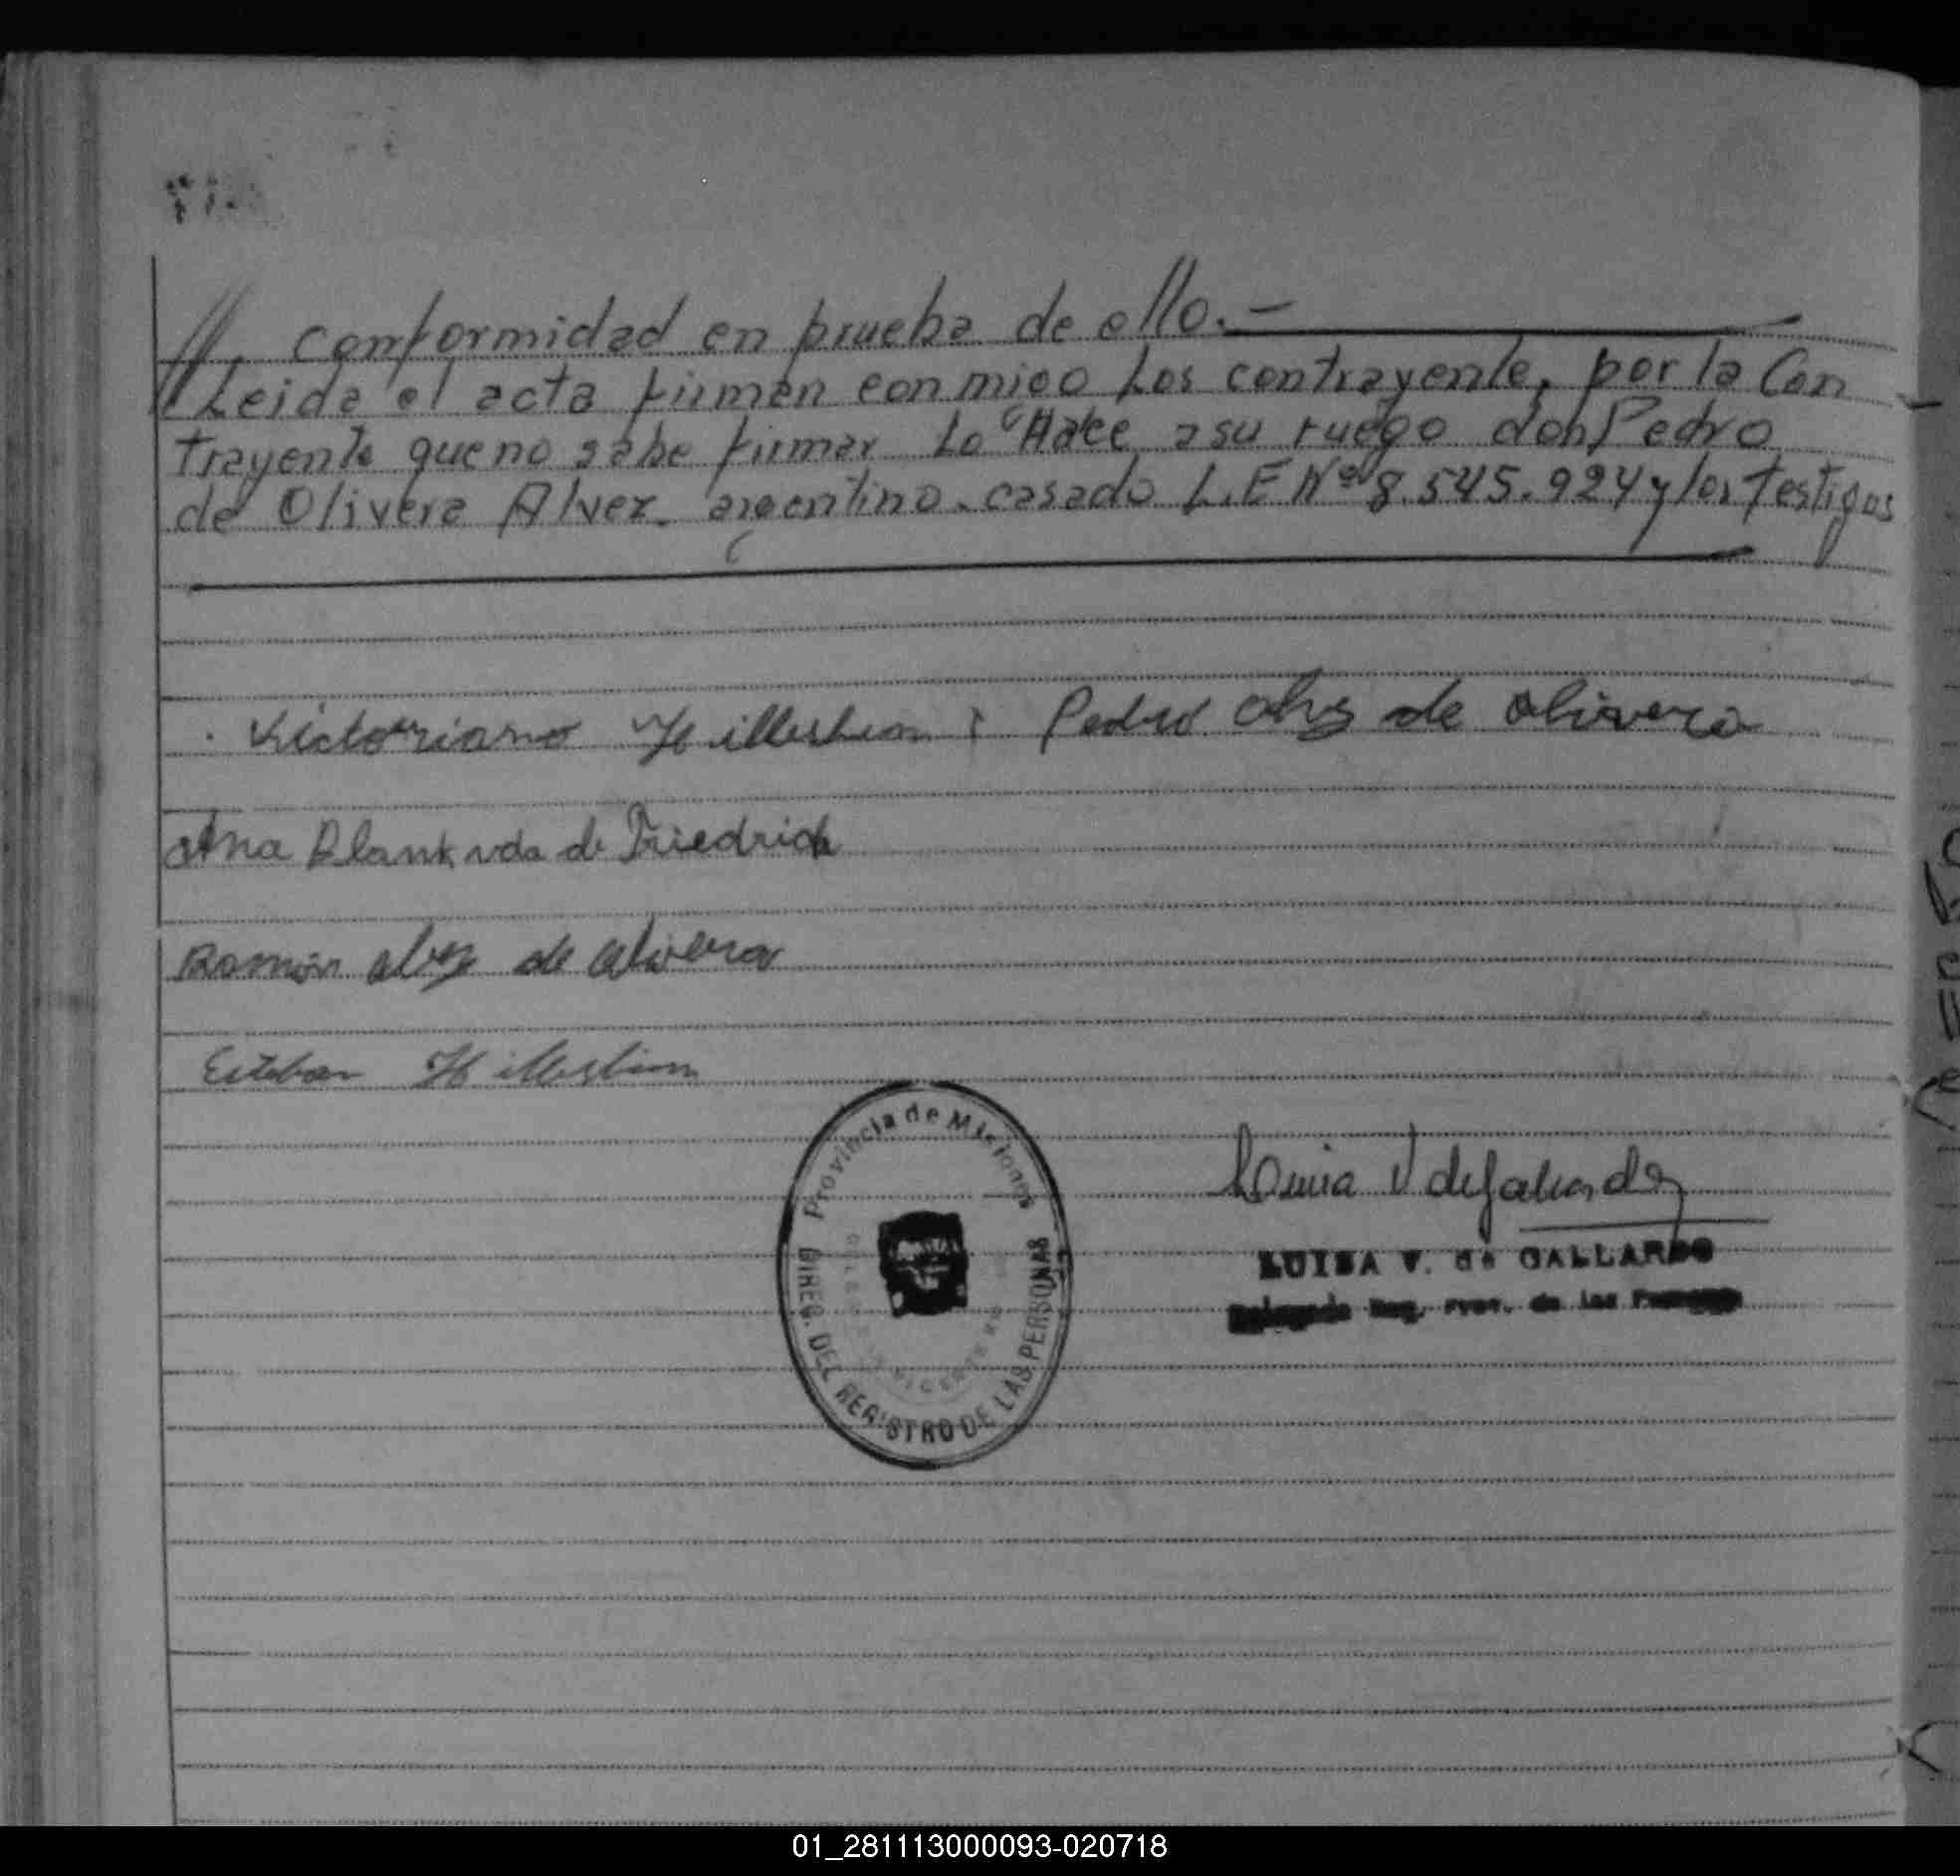 // Conformidad en prueba de ello.-
Leida el acta firman conmigo Los contrayente, por la Con
trayente que no sabe firmar Lo Hace a su ruego don Pedro
de Olivera Alvez. argentino. casado L.E Nº 8.545.924 y los testigos
Victoriano Hilleshein Pedro Alvz de Olivera
Ana Blank vda de Friedrich
Román alvz de olivera
Esteban Hilleshim
Provincia de Misiones
DIREC. DEL REGISTRO DE LAS PERSONAS
Luisa V de Gallardo
LUISA V. de GALLARDO
Delegada Reg. Prov. de las Personas
01_281113000093-020718